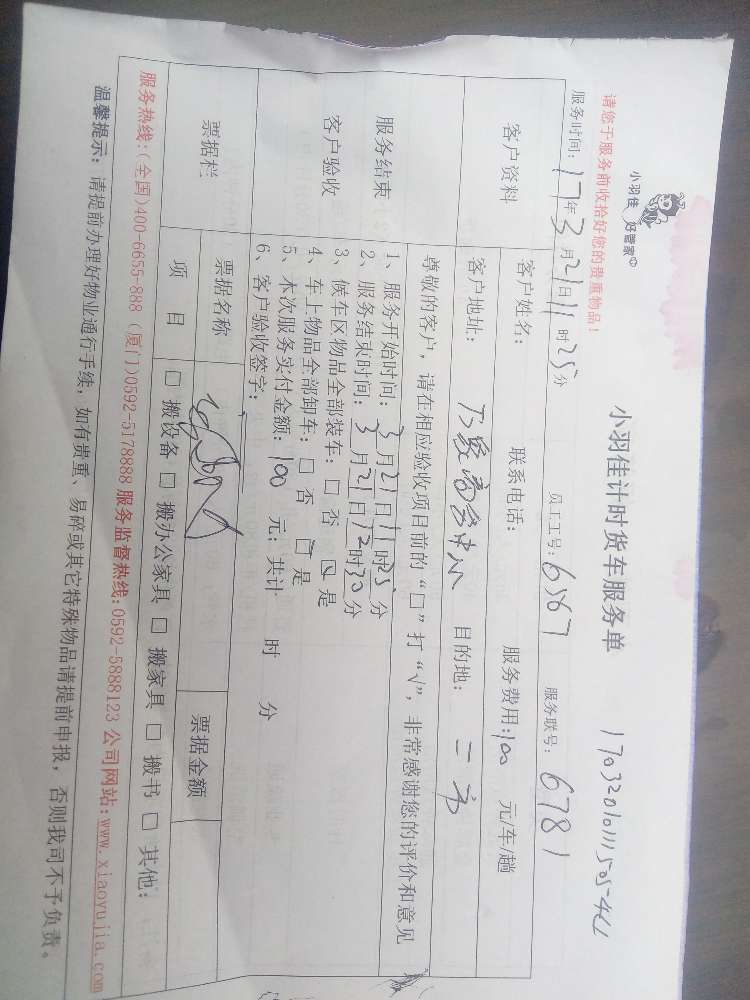 小羽佳 好管家
小羽佳计时货车服务单
请您于服务前收拾好您的贵重物品！
服务时间：17年3月21日11时25分 员工工号：6367 服务联号：6781
客户资料
客户姓名： 联系电话： 服务费用：100 元/车/趟
客户地址： 目的地：二市
服务结束
客户验收
尊敬的客户，请在相应验收项目前的“□”打“√”，非常感谢您的评价和意见
1、服务开始时间：3月21日11时25分
2、服务结束时间：3月21日12时30分
3、候车区物品全部装车：□ 否 □ 是
4、车上物品全部卸车：□ 否 □ 是
5、本次服务实付金额：100 元；共计 时 分
6、客户验收签字：
票据栏
票据名称 票据金额
项 目 □ 搬设备 □ 搬办公家具 □ 搬家具 □ 搬书 □ 其他：
服务热线：(全国)400-6655-888 (厦门)0592-5178888 服务监督热线：0592-5888123 公司网站：www.xiaoyujia.com
温馨提示：请提前办理好物业通行手续，如有贵重、易碎或其它特殊物品请提前申报，否则我司不予负责。